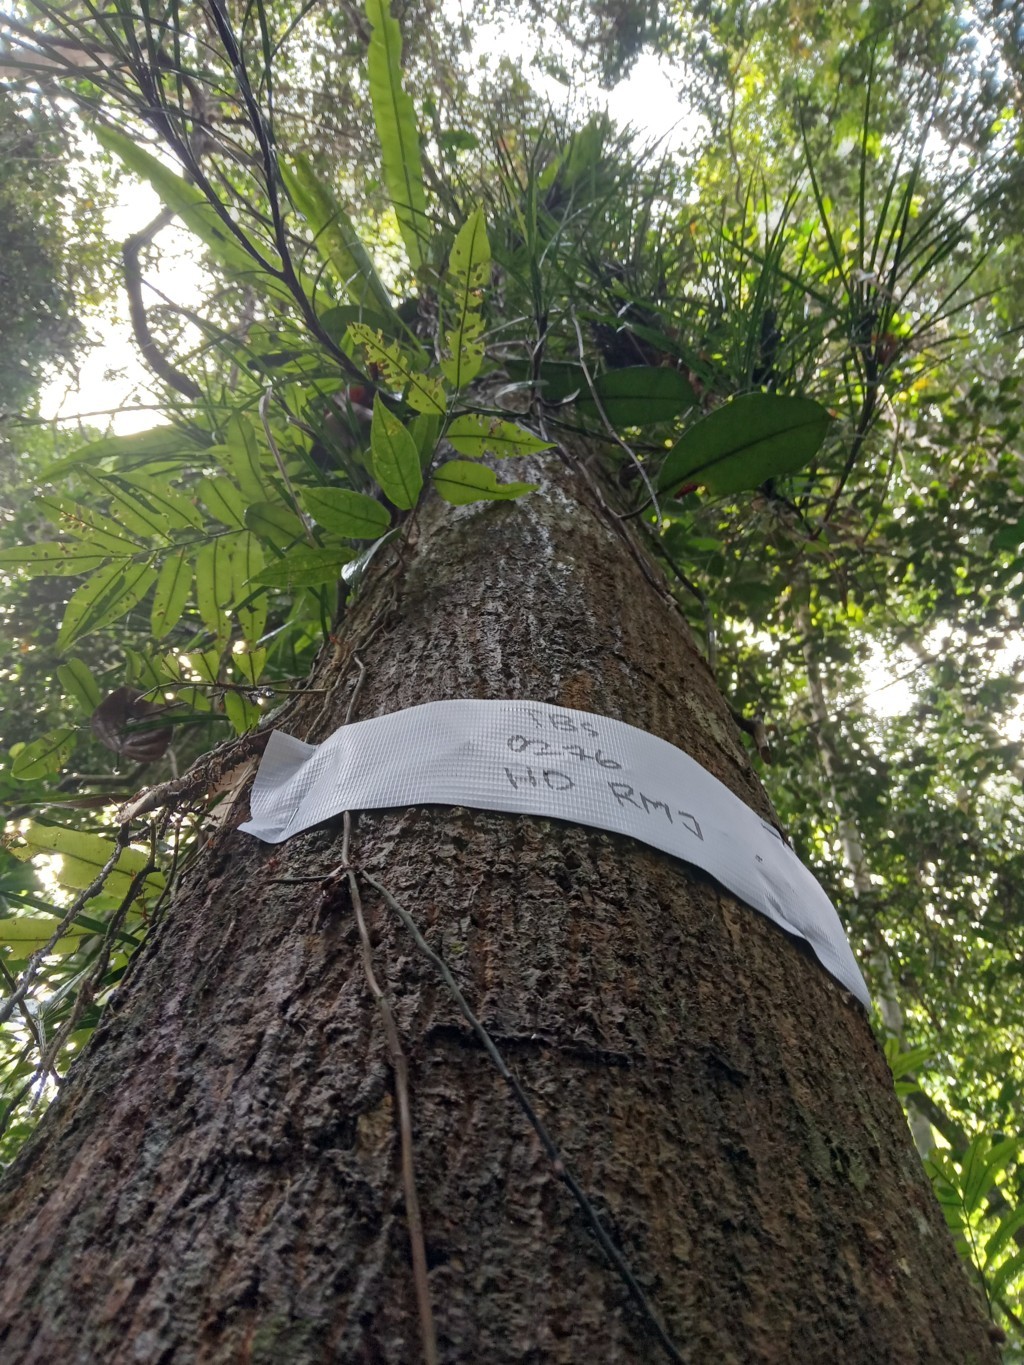 IBS
0276
HD RMJ